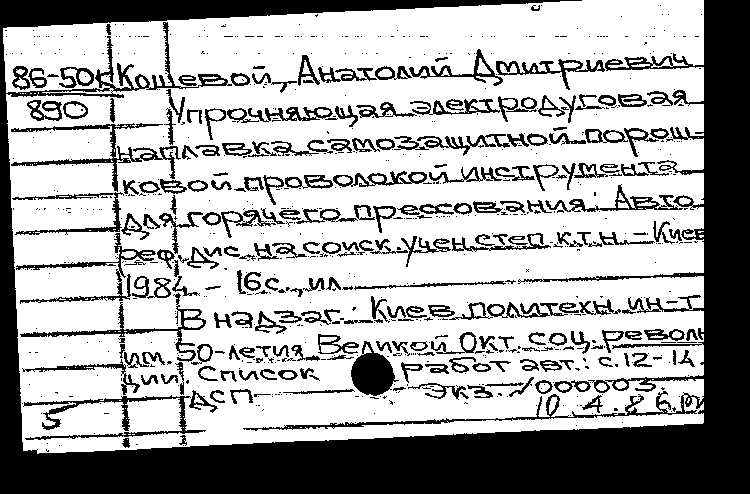 86-50к Кошевой, Анатолий Дмитриевич
890 Упрочняющая электродуговая
наплавка самозащитной порош-
ковой проволокой инструмента
для горячего прессования: Авто-
реф. дис. на соиск. учен. степ. к.т.н. - Киев
1984. - 16с., ил.
В надзаг.: Киев. политехн. ин-т
им. 50-летия Великой Окт. соц. револю
ции. Список работ авт.: с. 12-14.
ДСП Экз. №000003.
5 10.4.86.